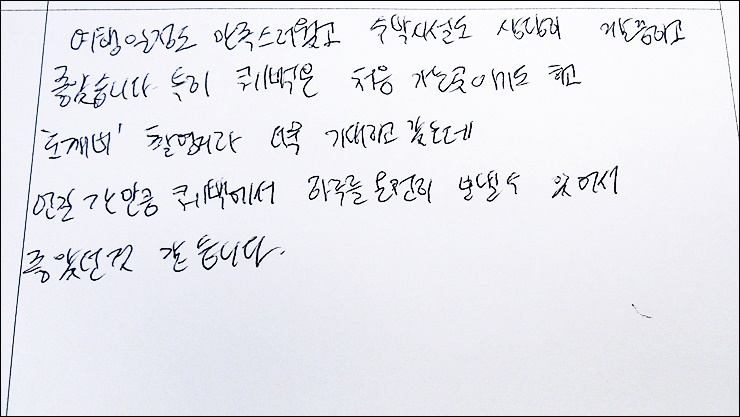 여행일정도 만족스러웠고 숙박시설도 상당히 깨끗하고
좋았습니다 특히 퀘벡은 처음 가는곳이기도 하고
'도깨비' 촬영지라 더욱 기대하고 갔는데
먼길 간만큼 퀘벡에서 하루를 온전히 보낼 수 있어서
좋았던것 같습니다.